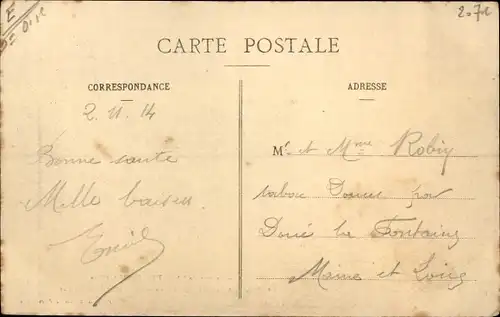 E
2.7e
CARTE POSTALE
CORRESPONDANCE
ADRESSE
2. 11. 14
Bonne santé
Mille baisers
Emile
Mr. et Mme Robin
par
Doué la Fontaine
Maine et Loire